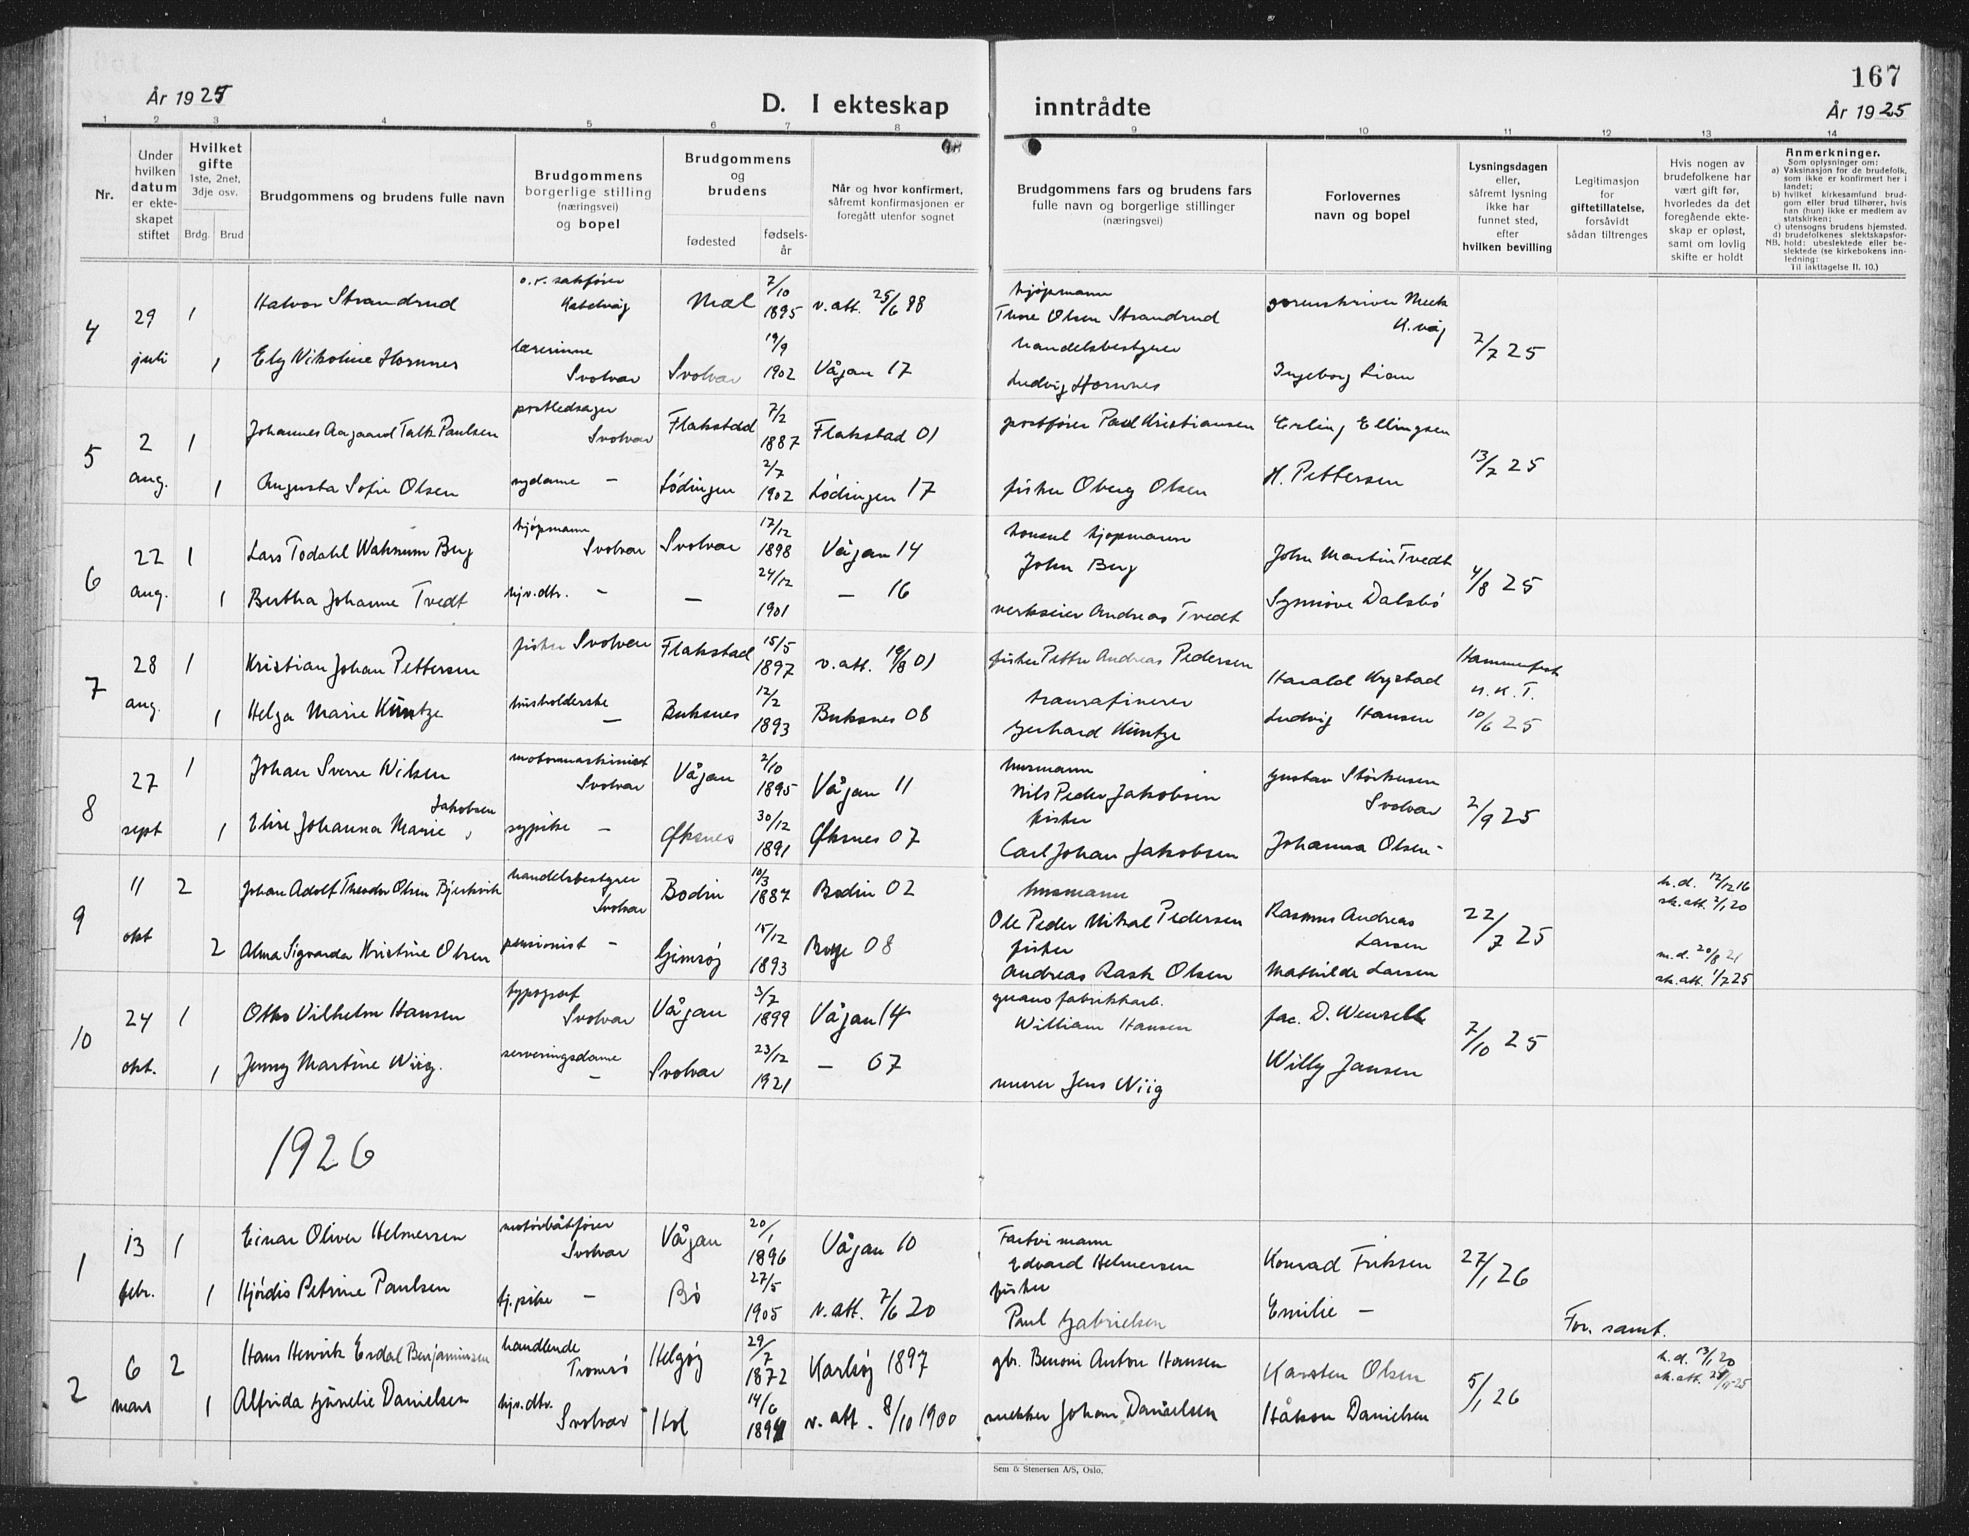 167
År 1925
D. I ekteskap
inntrådte
År 1925
1 2 3 4 5 6 7 8 9 10 11 12 13 14
Nr.
Under
hvilken
datum
er ekte-
skapet
stiftet
Hvilket
gifte
1ste, 2net,
3dje osv.
Brdg. Brud
Brudgommens og brudens fulle navn
Brudgommens
borgerlige stilling
(næringsvei)
og bopel
Brudgommens
og
brudens
fødested
fødsels-
år
Når og hvor konfirmert,
såfremt konfirmasjonen er
foregått utenfor sognet
Brudgommens fars og brudens fars
fulle navn og borgerlige stillinger
(næringsvei)
Forlovernes
navn og bopel
Lysningsdagen
eller,
såfremt lysning
ikke har
funnet sted,
efter
hvilken bevilling
Legitimasjon
for
giftetillatelse,
forsåvidt
sådan tiltrenges
Hvis nogen av
brudefolkene har
vært gift før,
hvorledes da det
foregående ekte-
skap er opløst,
samt om lovlig
skifte er holdt
Anmerkninger.
Som oplysninger om:
a) Vaksinasjon for de brudefolk,
som ikke er konfirmert her i
landet;
b) hvilket kirkesamfund brud-
gom eller brud tilhører, hvis
han (hun) ikke er medlem av
statskirken;
c) utensogns brudens hjemsted.
d) brudefolkenes slektskapsfor-
NB. hold: ubeslektede eller be-
slektede (se kirkebokens inn-
ledning:
Til iakttagelse II. 10.)
4
29
juli
1
Halvor Strandrud
o.r. sakfører
Kabelvåg
Mæl
7/10
1895
v. att. 25/6 98
kjøpmann
Thore Olsen Strandrud
sorenskriver Meek
K.våg
7/7 25
1
Ely Nikoline Hornnes
lærerinne
Svolvær
Svolvær
19/9
1902
Vågan 17
handelsbestyrer
Ludvig Hornnes
Ingeborg Lian
5
2
aug.
1
Johannes Aagaard Falk Paulsen
postledsager
Svolvær
Flakstad
7/2
1887
Flakstad 01
postfører Paul Kristiansen
Erling Ellingsen
13/7 25
1
Augusta Sofie Olsen
sydame —
Lødingen
2/7
1902
Lødingen 17
fisker Oberg Olsen
H. Pettersen
6
22
aug.
1
Lars Todahl Waknum Berg
kjøpmann
Svolvær
Svolvær
17/12
1898
Vågan 14
konsul kjøpmann
John Berg
John Martin Tvedt
4/8 25
1
Bertha Johanne Tvedt
hjv.dtr. —
—
24/12
1901
— 16
verkseier Andreas Tvedt
Synnøve Dalsbø
7
28
aug.
1
Kristian Johan Pettersen
fisker Svolvær
Flakstad
15/5
1897
v. att. 19/8 01
fisker Petter Andreas Pedersen
Harald Krystad
Hammerfest
u. k. T.
10/6 25
1
Helga Marie Küntze
husholderske
—
Buksnes
12/2
1893
Buksnes 08
tranrafinerer
Gerhard Küntze
Ludvig Hansen
8
27
sept
1
Johan Sverre Nilsen
motormaskinist
Svolvær
Vågan
2/10
1895
Vågan 11
husmann
Nils Peder Jakobsen
Gustav Størkersen
Svolvær
2/9 25
1
Elise Johanna Marie Jakobsen
sypike —
Øksnes
30/12
1891
Øksnes 07
fisker
Carl Johan Jakobsen
Johanna Olsen —
9
11
okt
2
Johan Adolf Theodor Olsen Bjerkvik
handelsbestyrer
Svolvær
Bodin
10/3
1887
Bodin 02
husmann
Ole Peder Mikal Pedersen
Rasmus Andreas
Larsen
22/7 25
h.d. 12/12 16
sk.att. 2/1 20
2
Alma Sigvarda Kristine Olsen
pensionist —
Gimsøy
15/12
1893
Borge 08
fisker
Andreas Rask Olsen
Mathilde Larsen
m.d. 20/8 21
sk.att. 1/7 25
10
24
okt.
1
Otto Vilhelm Hansen
typograf
Svolvær
Vågan
3/7
1899
Vågan 14
guanofabrikkarb.
William Hansen
fac. D. Wenzell
7/10 25
1
Jenny Martine Wiig.
serveringsdame
—
Svolvær
23/12
1921
— 07
murer Jens Wiig
Willy Jansen
1926
1
13
febr.
1
Einar Oliver Helmersen
motorbåtfører
Svolvær
Vågan
20/1
1896
Vågan 10
Fartøimann
Edvard Helmersen
Konrad Eriksen
27/1 26
1
Hjørdis Petrine Paulsen
tj.pike —
Bø
27/5
1905
v. att. 7/6 20
fisker
Paul Gabrielsen
Emilie —
2
6
mars
2
Hans Henrik Esdal Benjaminsen
handlende
Tromsø
Helgøy
29/7
1872
Karlsøy 1897
gbr. Benoni Anton Hansen
Karsten Olsen
5/1 26
Fov. samt.
h.d. 13/1 20
sk.att. 28/11 25
1
Alfrida Gunelie Danielsen
hjv.dtr.
Svolvær
Hol
14/6
v. att. 8/10 1900
snekker Johan Danielsen
Håkon Danielsen
Sem & Stenersen A/S, Oslo.